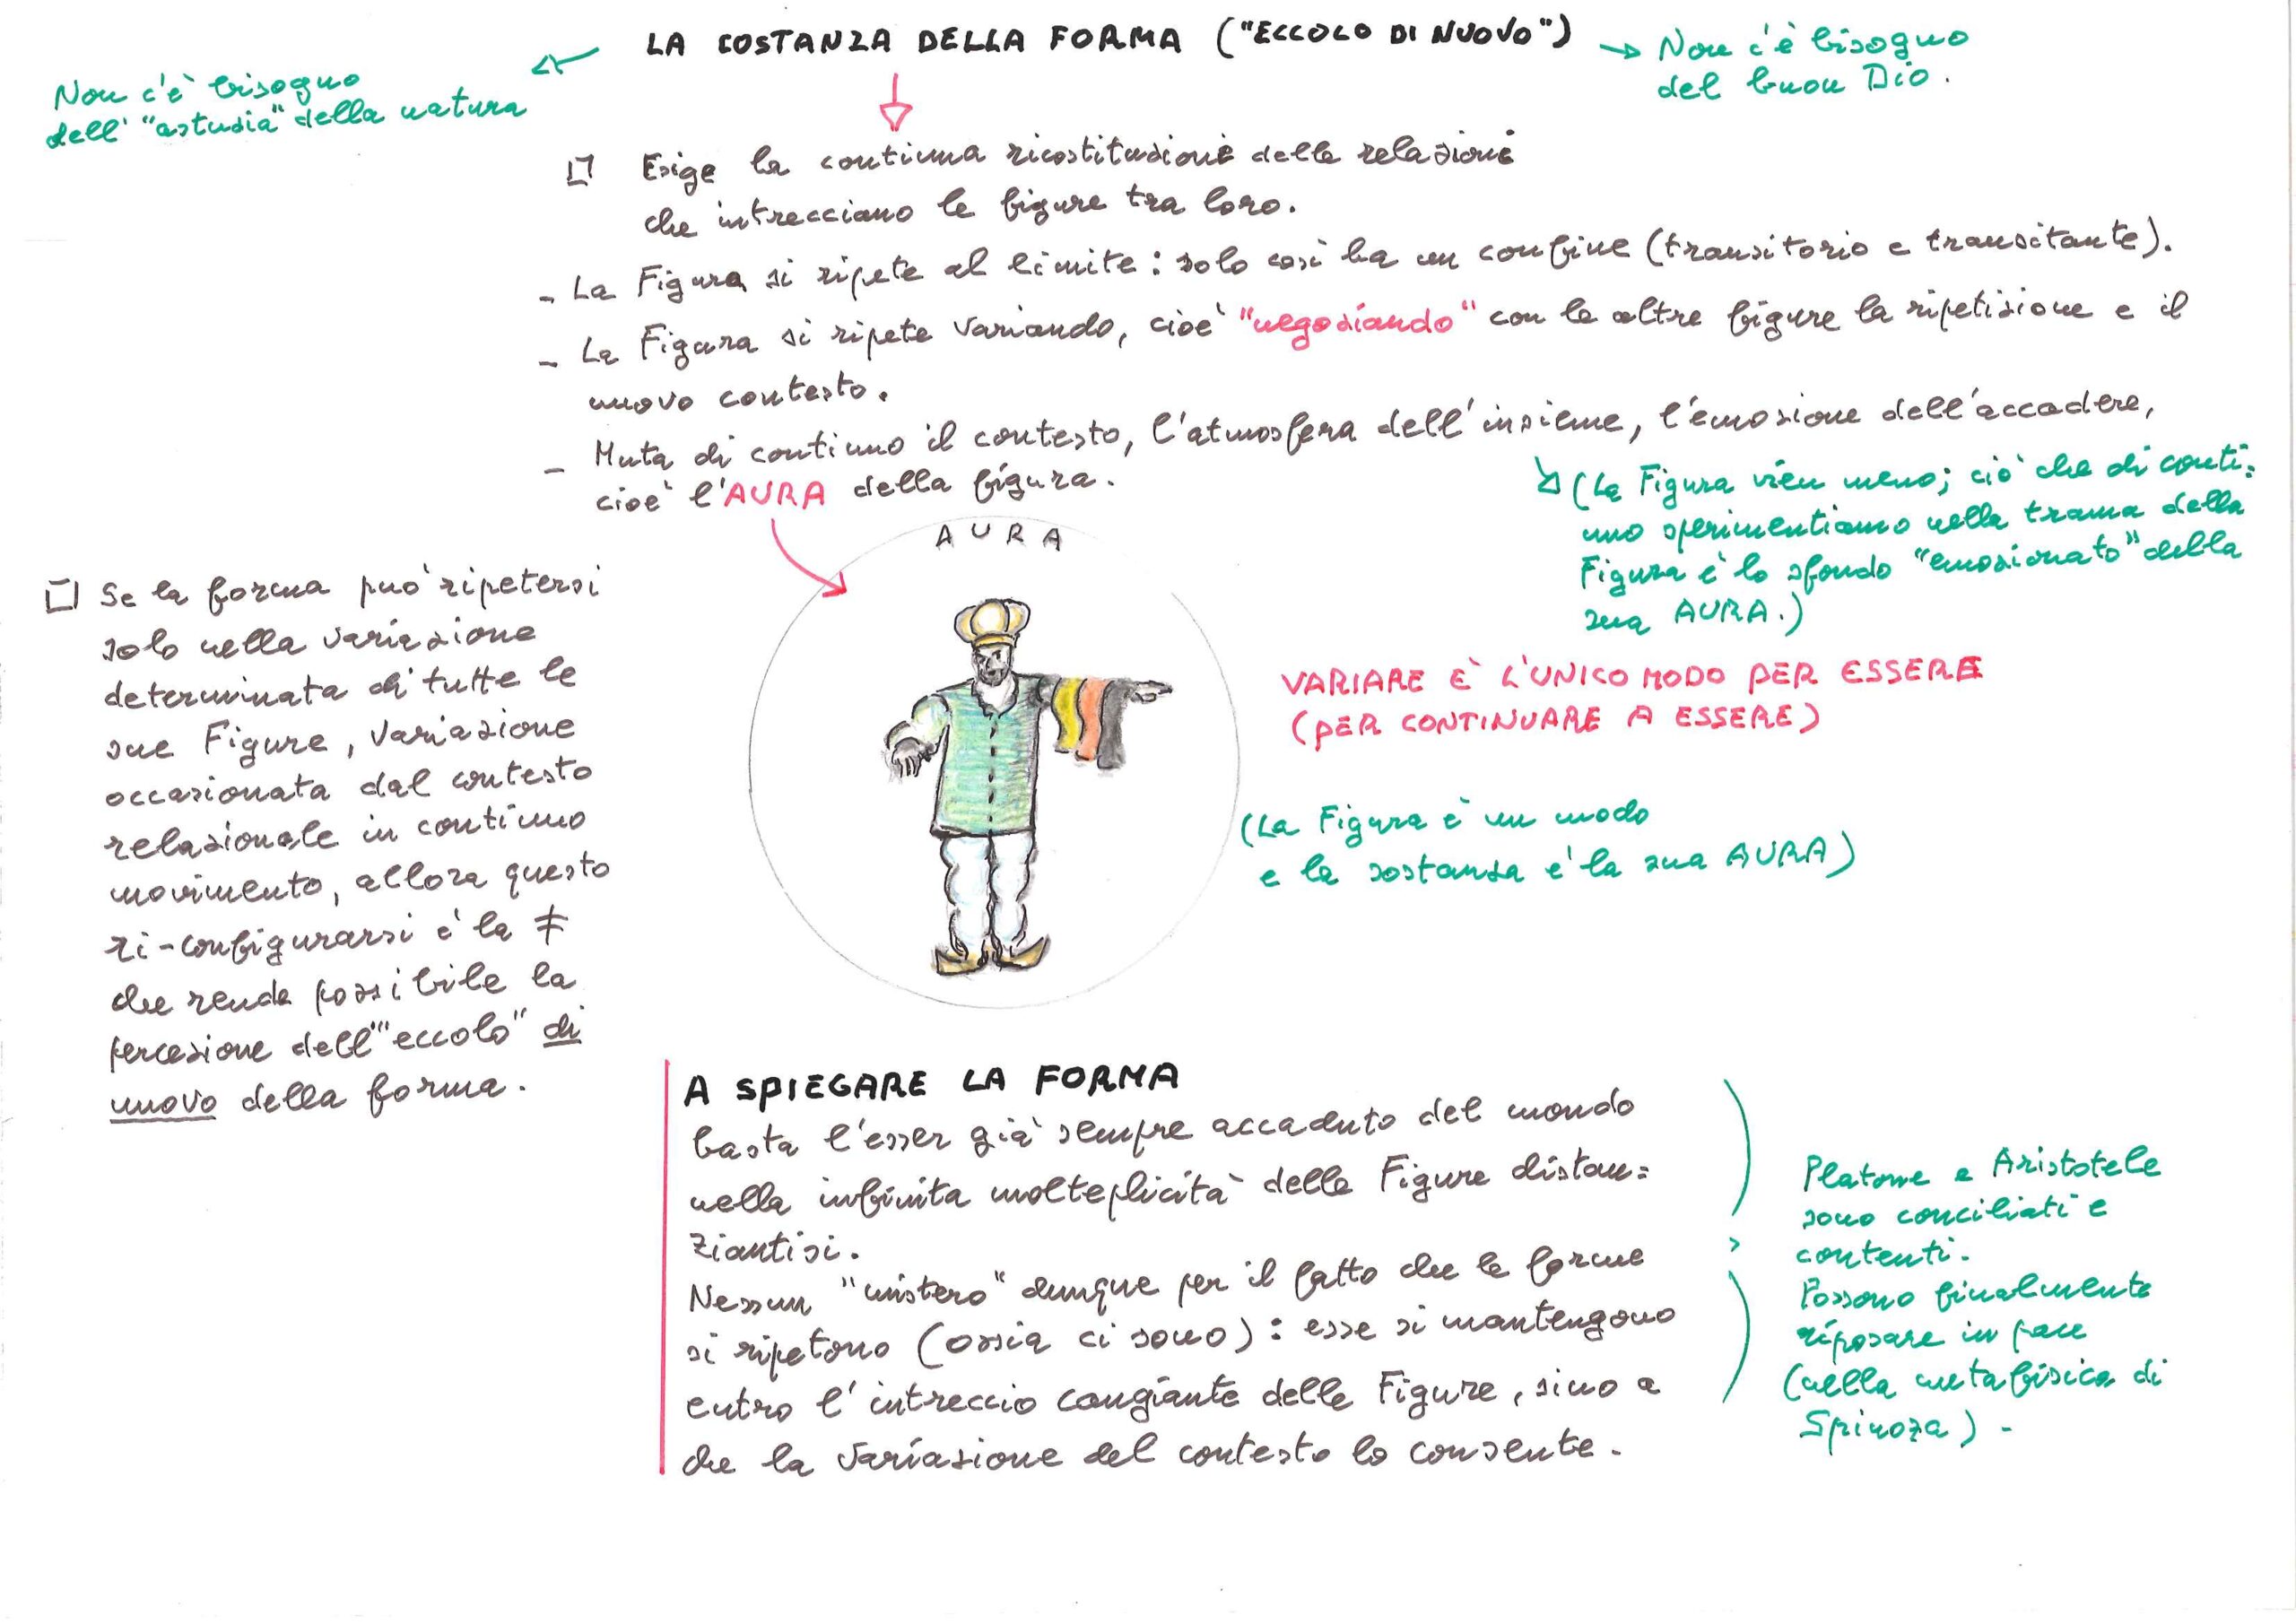 LA COSTANZA DELLA FORMA ("ECCOLO DI NUOVO")
Non c'è bisogno
dell' "astuzia" della natura
Non c'è bisogno
del buon Dio.
Esige la continua ricostituzione delle relazioni
che intrecciano le figure tra loro.
- La Figura si ripete al limite: solo così ha un confine (transitorio e transitante).
- La Figura si ripete variando, cioè "negoziando" con le altre figure la ripetizione e il
nuovo contesto.
- Muta di continuo il contesto, l'atmosfera dell'insieme, l'emozione dell'accadere,
cioè l'AURA della figura.
(La Figura vien meno; ciò che di conti=
nuo sperimentiamo nella trama della
Figura è lo sfondo "emozionato" della
sua AURA.)
AURA
Se la forma può ripetersi
solo nella variazione
determinata di tutte le
sue Figure, variazione
occasionata dal contesto
relazionale in continuo
movimento, allora questo
ri-configurarsi è la ≠
che rende possibile la
percezione dell'"eccolo" di
nuovo della forma.
VARIARE È L'UNICO MODO PER ESSERE
(PER CONTINUARE A ESSERE)
(La Figura è un modo
e la sostanza è la sua AURA)
A SPIEGARE LA FORMA
basta l'esser già sempre accaduto del mondo
nella infinita molteplicità delle Figure distan=
ziantisi.
Nessun "mistero" dunque per il fatto che le forme
si ripetono (ossia ci sono): esse si mantengono
entro l'intreccio cangiante delle Figure, sino a
che la variazione del contesto lo consente.
Platone e Aristotele
sono conciliati e
contenti.
Possono finalmente
riposare in pace
(nella metafisica di
Spinoza).